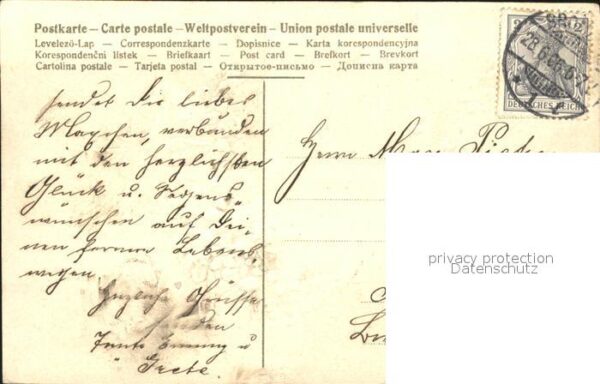 Postkarte — Carte postale — Weltpostverein — Union postale universelle
Levelező-Lap — Correspondenzkarte — Dopisnice — Karta korespondencyjna
Korespondenční lístek — Briefkaart — Post card — Brefkort — Brevkort
Cartolina postale — Tarjeta postal — Открытое-письмо — Дописна карта
DEUTSCHES REICH
sendet dir liebes
verbunden
mit den herzlichsten
Glück u. Segens-
wünschen auf Dei-
nen fernern Lebens-
wegen.
Herzliche Grüsse
senden
Tante Emmy u
Grete.
Herrn Max
privacy protection
Datenschutz